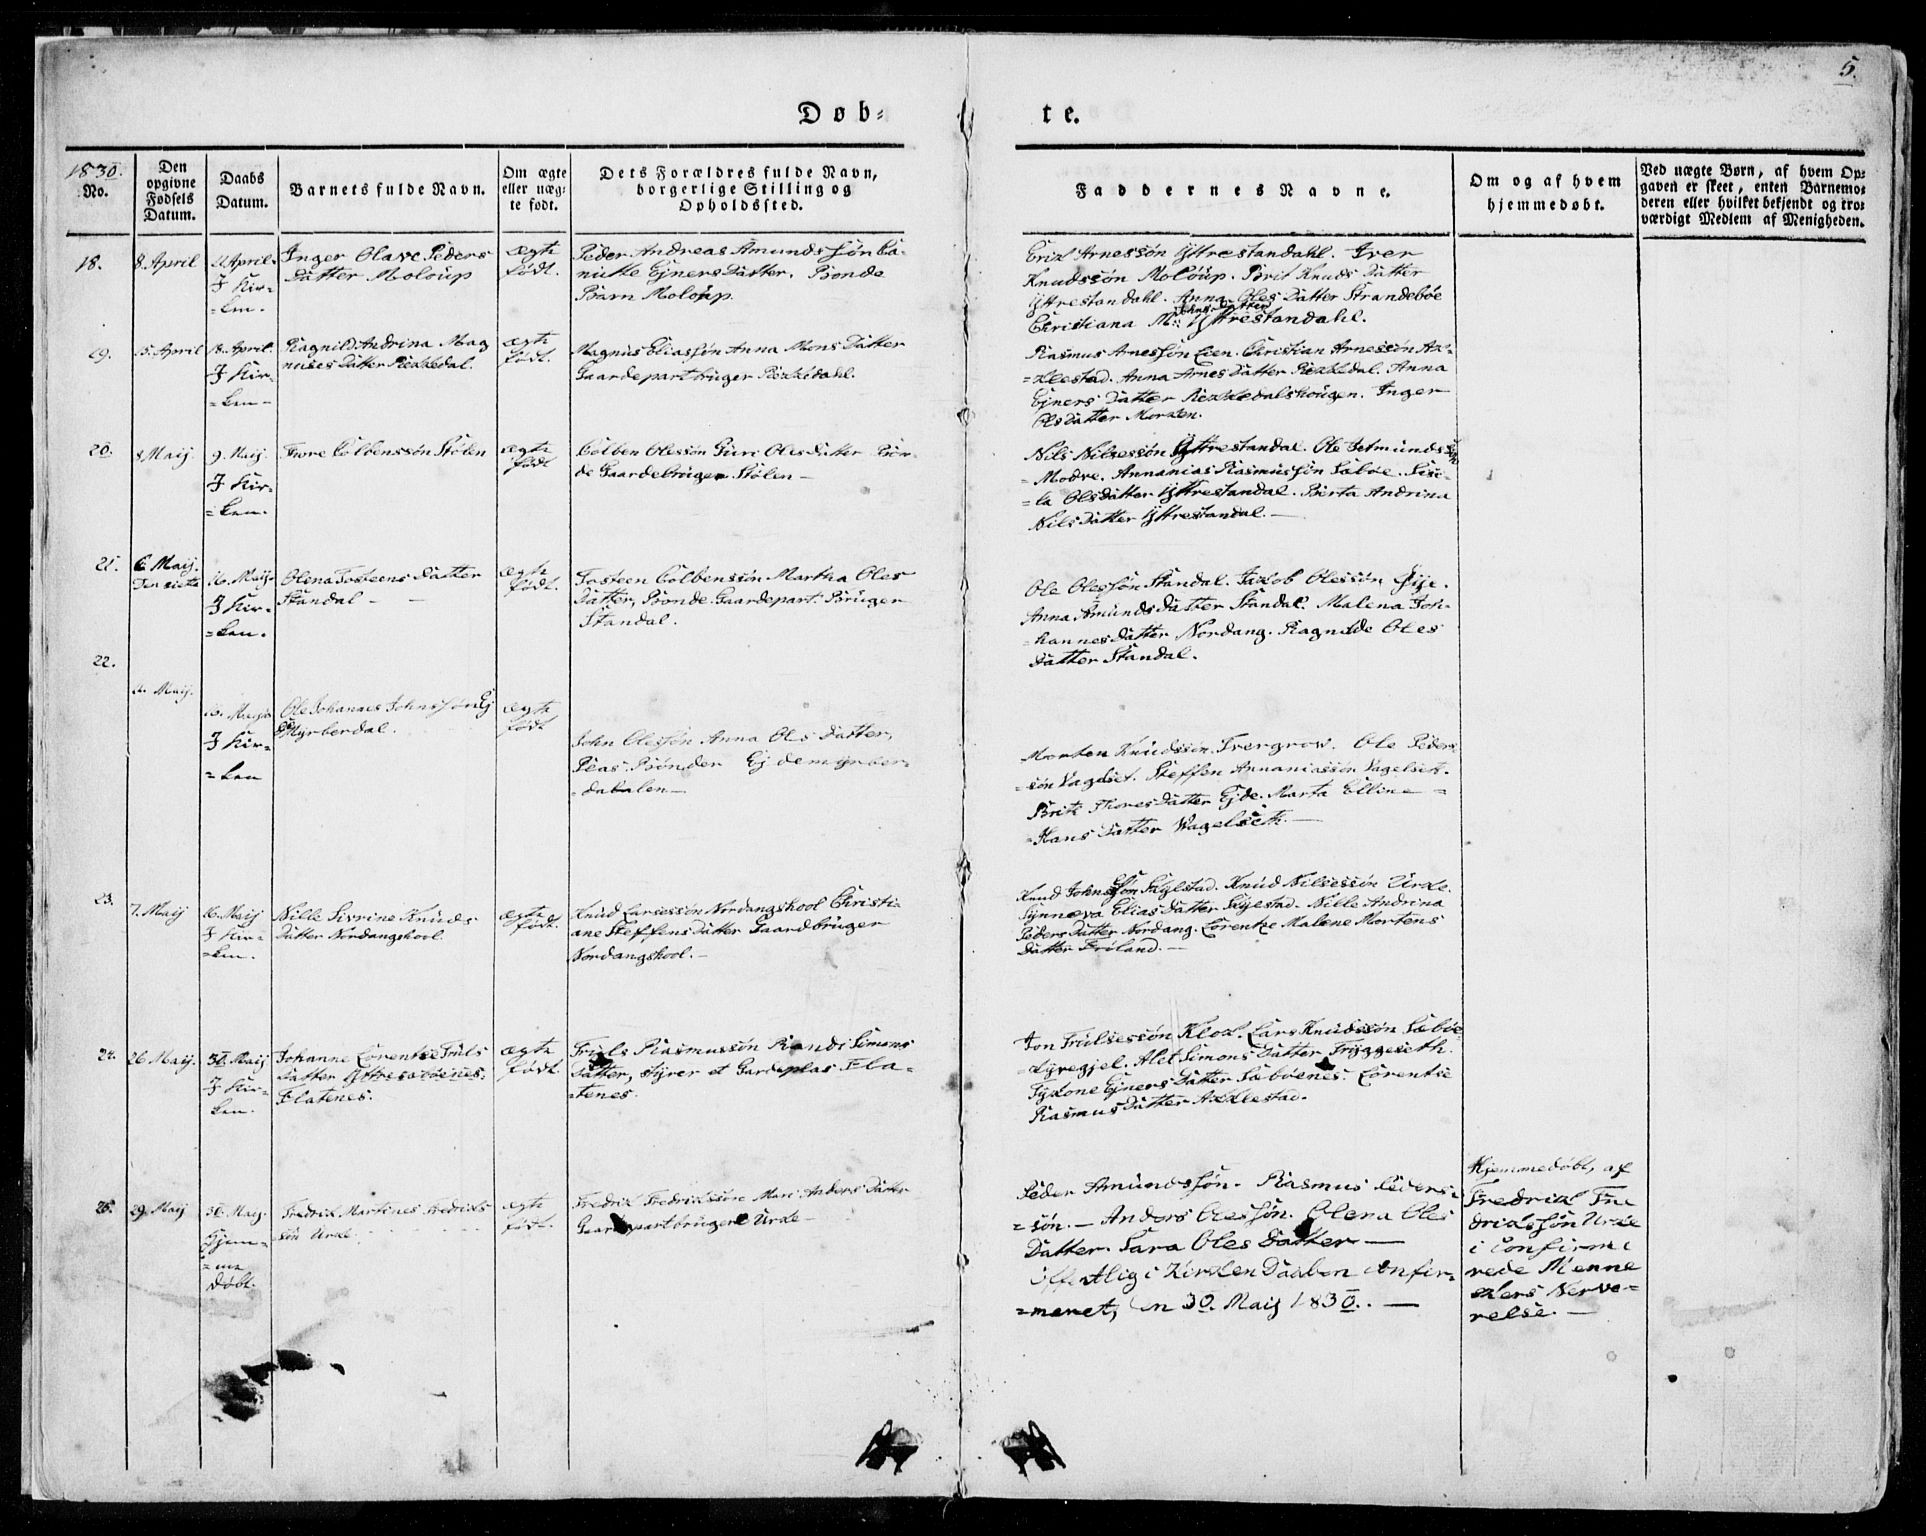 5.
Døb-
te.
1830.
No.
Den
opgivne
Fødsels
Datum.
Daabs
Datum.
Barnets fulde Navn.
Om ægte
eller uæg-
te født.
Dets Forældres fulde Navn,
borgerlige Stilling og
Opholdssted.
Faddernes Navne.
Om og af hvem
hjemmedøbt.
Ved uægte Børn, af hvem Op-
gaven er skeet, enten Barnemo-
deren eller hvilket bekjendt og tro-
værdigt Medlem af Menigheden.
18.
8 April
11 April.
I Kir-
=ken.
Inger Olave Peders
Datter Moloüp
ægte
født.
Peder Andreas Amunds søn
Ejners Datter. Bonde
Barn Moloüp.
Erik Arnessøn Yttrestandahl. Iver
Knudssøn Moloüp. Brit Knuds Datter
Yttrestandahl. Anna Oles Datter Strandebøe
Johns Datter
Christiana M:: Yttrestandahl.
19.
15. April
18. April.
I Kir-
=ken-
Ragnild Andrina Mag
nuses Datter Rekkedal.
ægte
født.
Magnus Eliassøn Anna Mons Datter
Gaardepartbruger Rekkedahl.
Rasmus Arnessøn Eien. Christian Arnessøn Ak-
=klestad. Anna Arnes Datter Rekkedal. Anna
Ejners Datter Rekkedalshougen. Inger
Ols Datter Morken.
20.
8 Maij.
9. Maij.
I Kir-
=ken.
Tore Colbenssøn Stølen
ægte
født
Colben Olessøn Guri Oles Datter Bon-
de Gaardebruger Stølen-
Nils Nilsessøn Yttrestandal. Ole Jetmunds søn
=Modre. Annanias Rasmussøn Sæbøe. Sisi-
=la Olsdatter Yttrestandal. Berta Andrina
Nils Datter Yttrestandal.-
21.
6 Maij.
Den siette
16. Maij.
I Kir-
=ken.
Olena Tosteens Datter
Standal-
ægte
født.
Tosteen Colbenssøn Martha Oles
Datter, Bonde. Gaardepart. Bruger
Standal.
Ole Olessøn Standal. Jakob Olessøn
Anna Amunds Datter Standal. Malena Joh-
=hannes Datter Nordang. Ragnilde Oles
Datter Standal.
22.
Maij.
16. Maij.
I Kir-
=ken
Ole Johannes Johnssøn Ej
de Myrberdal.
ægte
født
John Olessøn Anna Ols Datter,
Plas. Bønder Ejdemyrber-
=dalen-
Morten Knudssøn. Tvergrow. Ole Peders
=søn Vagelset. Steffen Annaniassøn Vagelset.
Brite Thores Datter Ejde. Marta Elline-
=Hans Datter Vagelseth.-
23.
7. Maij
16. Maij
I Kir-
=ken.
Nille Sivrine Knuds
Datter Nordangskool.
ægte
født.
Knud Larsessøn Nordangskool Christi-
ane Steffens Datter Gaardbruger
Nordangskool.-
Knud Johnssøn Skjelstad. Knud Nilsessøn Urke.
Synneva Elias Datter Skjestad. Nille Andrina
Peders Datter Nordang. Lorentze Malene Mortens
Datter Friland.-
24.
26 Maij.
30 Maij
I Kir-
ken.
Johanne Lorentse Truls
Datter Yttresæbøenes.
Flatenes.
ægte
født.
Truls Rasmussøn Randi Simons
Datter, styrer et Gardeplas Fla-
=tenes.
Jon Trulsessøn Klok. Lars Knudssøn Sæbøe
=Lyregjel. Alet Simons Datter Tryggeseth.
Ejners Datter Sæbøenes. Lorentse
Rasmus Datter Akklestad.
25.
29. Maij
30. Maij.
Hjem-
=me
døbt.
Fredrik Martines Fredriks
søn Urke.
ægte
født.
Fredrik Fredrikssøn Mari Anders Datter
Gaardepartbruger Urke-
Peder Amundssøn. Rasmus Peders-
=søn.- Anders Olessøn. Olena Oles
Datter. Sara Oles Datter-
Offentlig i Kirken Daaben Confir-
=meret, den 30. Maij 1830.-
Hjemmedøbt, af
Fredrik Fre
drikssøn Urke
i Confirme
rede Menne
skers Nerve-
relse.-